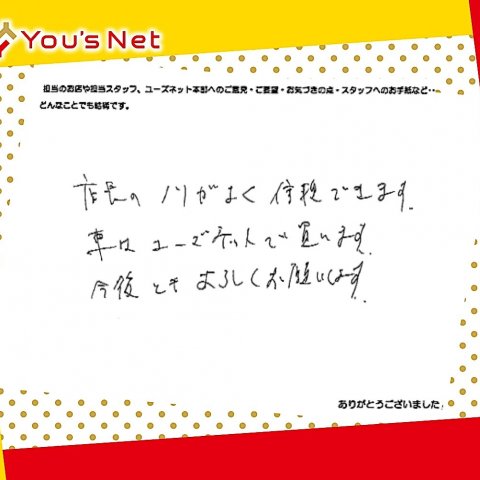 You's Net
担当のお店や担当スタッフ、ユーズネット本部へのご意見・ご要望・お気づきの点・スタッフへのお手紙など…
どんなことでも結構です。
店長の ノリがよく 信頼できます。
車は ユーズネットで 買います。
今後とも よろしくお願いします。
ありがとうございました